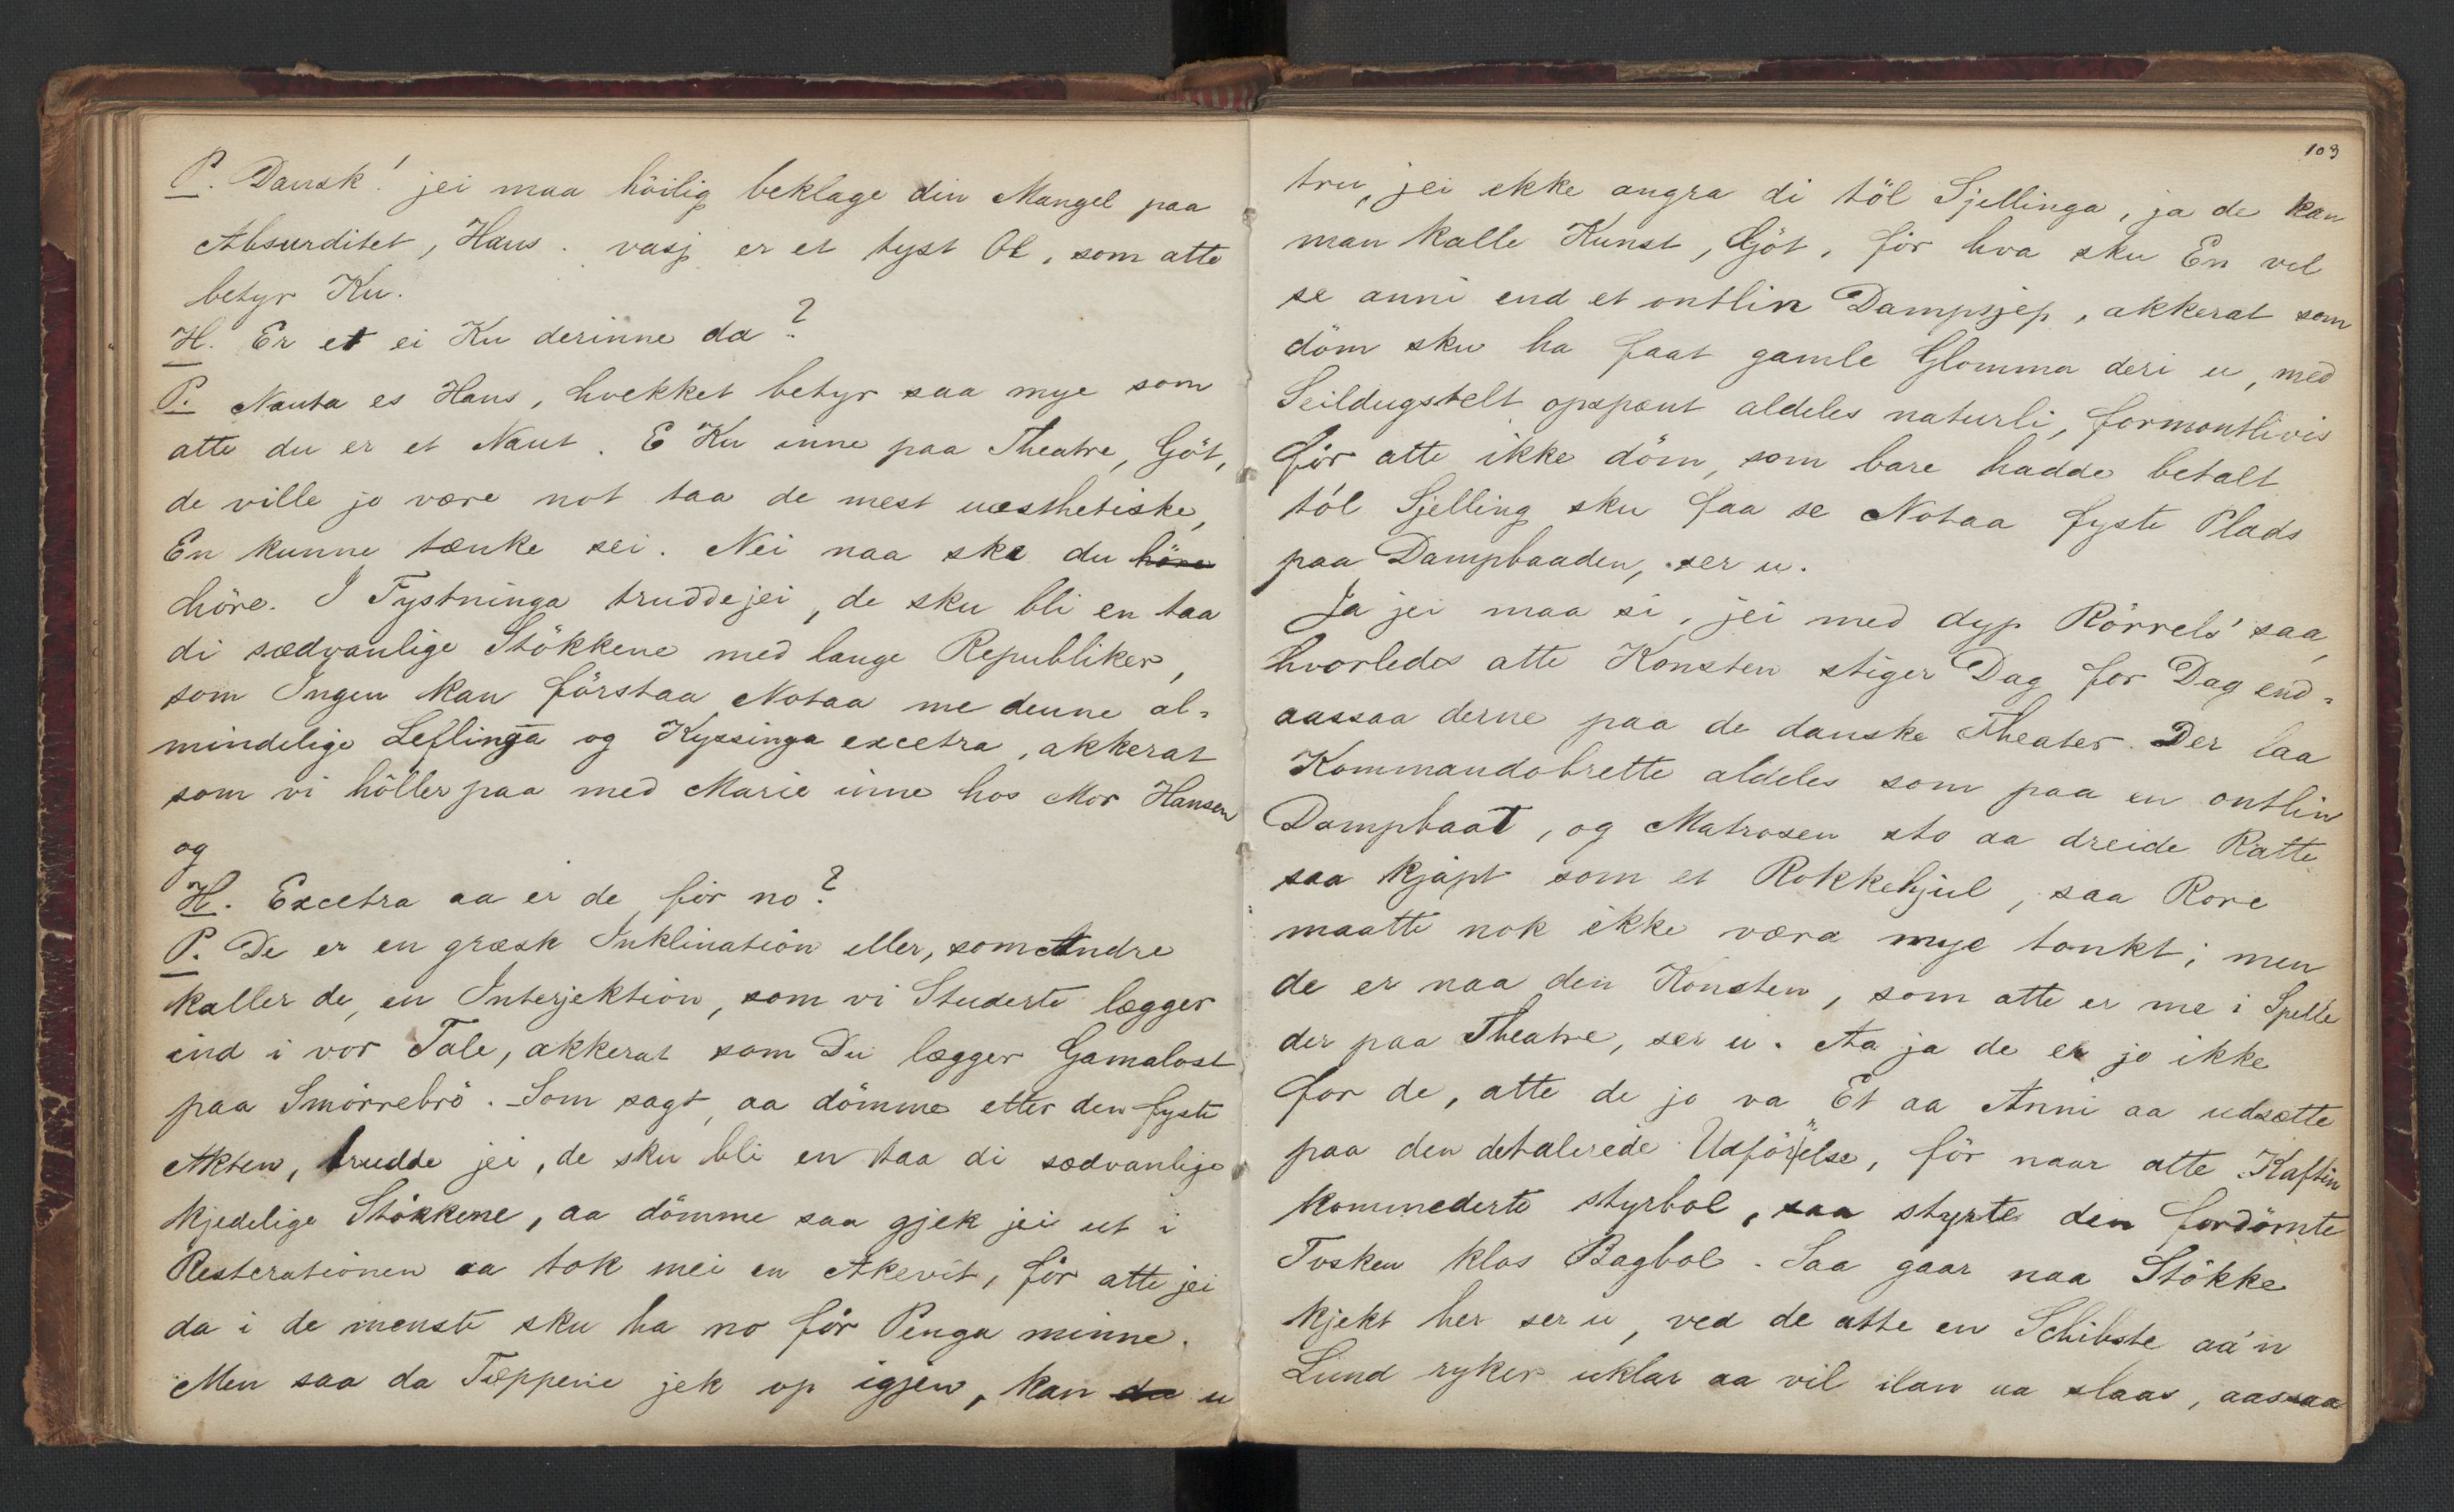 P. Dansk! jei maa höilig beklage din Mangel paa
Absurditet, Hans. vasj er et tyst Ol, som atte
betyr Ku.
H. Er et ei Ku derinne da?
P. Nauta es Hans, hvekket betyr saa mye som
atte du er et Naut. E Ku inne paa Theatre, Göt,
de ville jo være not taa de mest uæsthetiske,
En kunne tænke sei. Nei naa ska du höre
höre. I Fystninga trudde jei, de sku bli en taa
di sædvanlige Stökkene med lange Republiker,
som Ingen kan förstaa Notaa me denne al-
mindelige Leflinga og Kyssinga excetra, akkerat
som vi höller paa med Marie inne hos Mor Hansen
og
H. Excetra aa er de för no?
P. De er en græsk Inklination eller, som Andre
kaller de, en Interjektion, som vi Studerte lægger
ind i vor Tale, akkerat som Du lægger Gamalost
paa Smörrebrö. Som sagt, aa dömme etter den fyste
Akten, trudde jei, de sku bli en taa di sædvanlige
kjedelige Stökkene, aa dömme saa gjek jei ut i
Resterationen aa tok mei en Akevit, för atte jei
da i de menste sku ha no för Penga minne.
Men saa da Tæppene jek op igjen, kan du u
103
tru, jei ekke angra di töl Sjellinga, ja de kan
man kalle Kunst, Gjöt, för hva sku En vel
se anni end et ontlin Dampsjep, akkerat som
döm sku ha faat gamle Glomma deri u, med
Seildugstelt opspænt aldeles naturli, formontlivis
för atte ikke döm, som bare hadde betalt
töl Sjelling sku faa se Notaa fyste Plads
paa Dampbaaden, ser u.
Ja jei maa si, jei med dyp Rörrels' saa,
hvorledes atte Konsten stiger Dag for Dag end-
aassaa derne paa de danske Theater. Der laa
Kommandobrette aldeles som paa en ontlin
Dampbaat, og Matrosen sto aa dreide Ratte
saa kjapt som et Rokkehjul, saa Rore
maatte nok ikke væra mye tonkt; men
de er naa den Konsten, som atte er me i Spelle
der paa Theatre, ser u. Aa ja de er jo ikke
for de, atte de jo va Et aa Anni aa udsætte
paa den detalerede Udförelse, för naar atte Kaftin
kommederte styrbol, saa styrte den fordömte
Tosken klos Bagbol. Saa gaar naa Stökke
kjekt her ser u, ved de atte en Schibste aa'n
Lund ryker uklar aa vil ilan aa slaas, aassaa